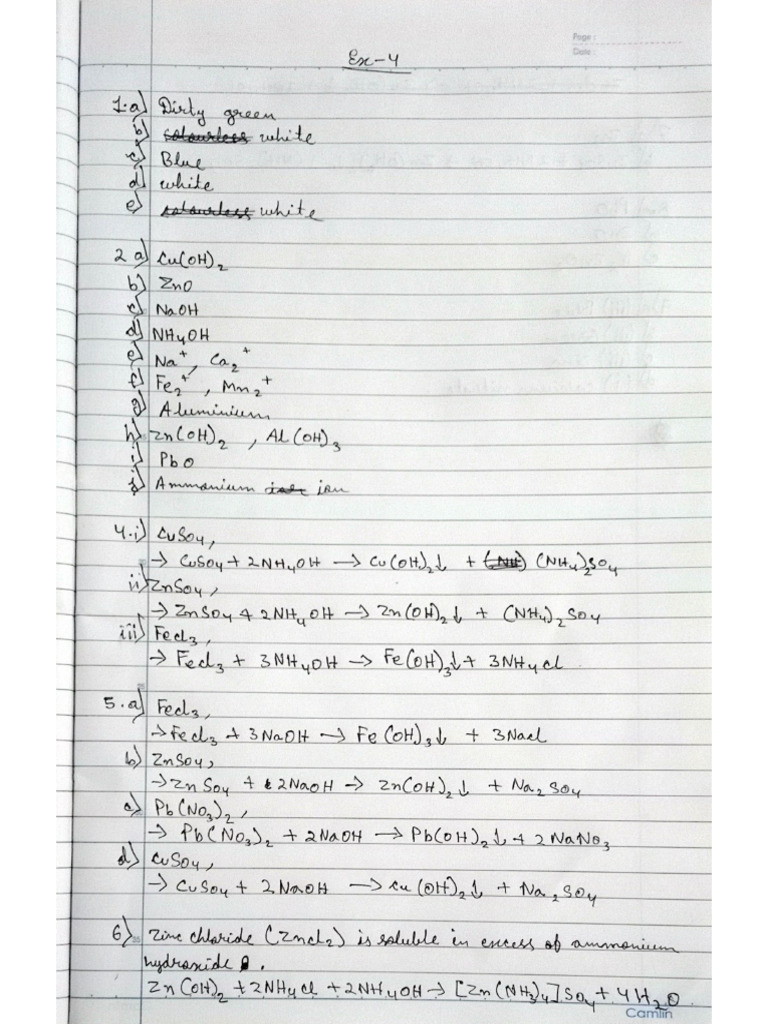 Page :
Date :
Ex-4
1.a) Dirty green
b) colourless white
c) Blue
d) white
e) colourless white
2 a) Cu(OH)₂
b) ZnO
c) NaOH
d) NH₄OH
e) Na⁺, Ca₂⁺
f) Fe₂⁺, Mn₂⁺
g) Aluminium
h) Zn(OH)₂ , Al(OH)₃
i) PbO
j) Ammonium ion
4.i) CuSO₄,
→ CuSO₄ + 2NH₄OH → Cu(OH)₂↓ + (NH₄)₂SO₄
ii) ZnSO₄,
→ ZnSO₄ + 2NH₄OH → Zn(OH)₂↓ + (NH₄)₂SO₄
iii) FeCl₃,
→ FeCl₃ + 3NH₄OH → Fe(OH)₃↓ + 3NH₄Cl
5.a) FeCl₃,
→ FeCl₃ + 3NaOH → Fe(OH)₃↓ + 3NaCl
b) ZnSO₄,
→ ZnSO₄ + 2NaOH → Zn(OH)₂↓ + Na₂SO₄
c) Pb(NO₃)₂,
→ Pb(NO₃)₂ + 2NaOH → Pb(OH)₂↓ + 2NaNO₃
d) CuSO₄,
→ CuSO₄ + 2NaOH → Cu(OH)₂↓ + Na₂SO₄
6) Zinc chloride (ZnCl₂) is soluble in excess of ammonium
hydroxide.
Zn(OH)₂ + 2NH₄Cl + 2NH₄OH → [Zn(NH₃)₄]SO₄ + 4H₂O
Camlin